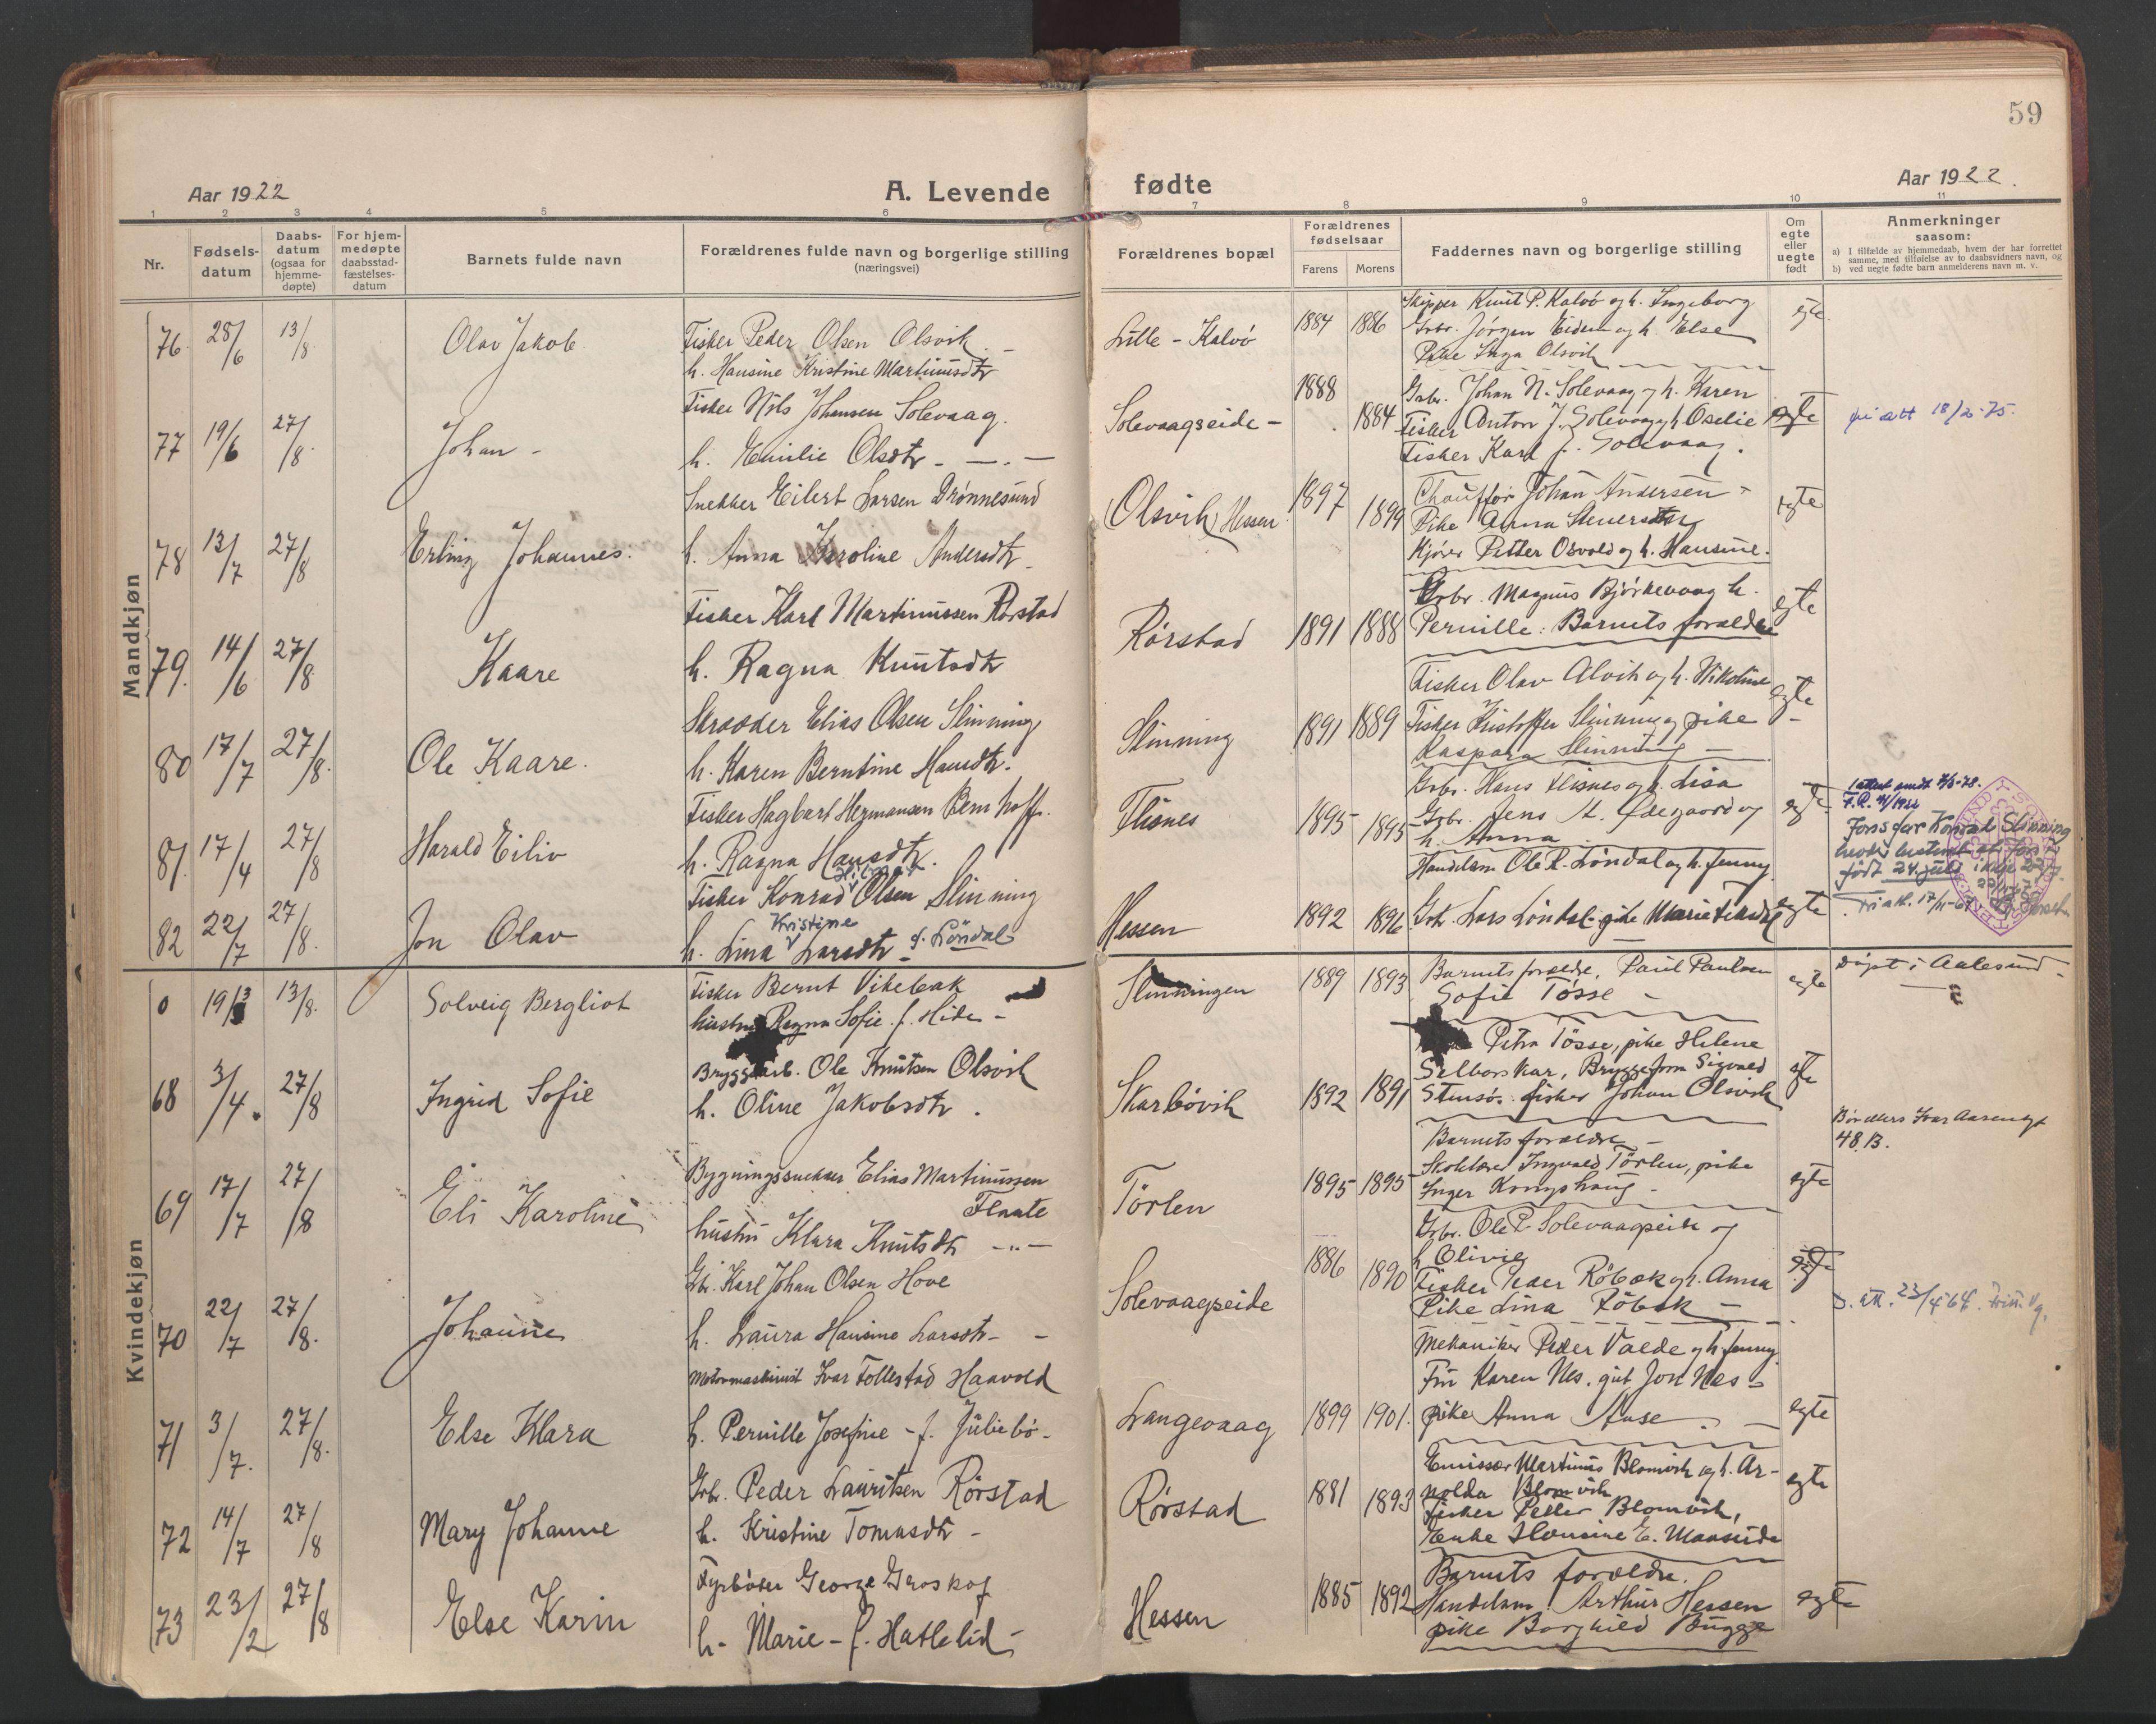 59
Aar 1922
A. Levende
fødte
Aar 1922.
1 2 3 4 5 6 7 8 9 10 11
Nr.
Fødsels-
datum
Daabs-
datum
(ogsaa for
hjemme-
døpte)
For hjem-
medøpte
daabsstad-
fæstelses-
datum
Barnets fulde navn
Forældrenes fulde navn og borgerlige stilling
(næringsvei)
Forældrenes bopæl
Forældrenes
fødselsaar
Farens Morens
Faddernes navn og borgerlige stilling
Om
egte
eller
uegte
født
Anmerkninger
saasom:
a) I tilfælde av hjemmedaab, hvem der har forrettet
samme, med tilføielse av to daabsvidners navn, og
b) ved uegte fødte barn anmelderens navn m. v.
Mandkjøn
76. 28/6 13/8 Olav Jakob.
Fisker Peder Olsen Olsvik. —
h. Hansine Kristine Martinusdtr
Lille - Kalvö 1884 1886
Skipper Knut P. Kalvö og h. Ingeborg
Grbr. Jørgen Eidem og h. Else
Pike Inga Olsvik
egte
77 19/6 27/8 Johan -
Fisker Nils Johansen Solevaag.
h. Emilie Olsdtr - — . —
Solevaagseide - 1888 1884
Grbr. Johan N. Solevaag og h. Karen
Fisker Anton J. Solevaag og h. Oselie
Fisker Karl J. Solevaag.
egte
18/2-75.
78 13/7 27/8 Erling Johannes.
Snekker Eilert Larsen Drønnesund
h. Anna Karoline Andersdtr -
Olsvik, Hessen 1897 1899
Chauffør Johan Andersen -
Pike Anna
Kjører Petter Osvold og h. Hansine.
egte
79. 14/6 27/8 Kaare
Fisker Karl Martinussen Rørstad
h. Ragna Knutsdtr
Rørstad 1891 1888
Grbr. Magnus Bjørkevaag h.
Pernille: Barnets forældre
egte
80 17/7 27/8. Ole Kaare.
Skrædder Elias Olsen Slinning
h. Karen Berntine Hansdtr.
Slinning 1891 1889
Fisker Olav Alvik og h. Nikoline
Fisker Kristoffer Slinning og pike
Kaspara Slinning —
egte
81. 17/4 27/8 Harald Eiliv
Fisker Hagbart Hermansen Bernhoff.
h. Ragna Hansdtr.
Flisnes 1895 1895
Grbr. Hans Flisnes og h. Lisa
Grbr. Jens A. Ødegaard og
h. Anna
egte
82 22/7 27/8. Jon Olav
Fisker Konrad Hilmar Olsen Slinning
h. Lina Kristine Larsdtr f. Löndal
Hessen 1892 1896
Handelsm. Ole R. Löndal og h. Jenny
Grbr. Lars Löndal - pike Marie
egte
født 24. juli
17/11-67
Kvindekjøn
0 19/3 13/8. Solveig Bergliot
Fisker Bernt Vikebak
hustru Ragna Sofie f. Hide -
Slinningen 1889 1893
Barnets forældre, Paul Paulsen
Sofie Tösse -
egte
Døpt i Aalesund -
68 3/4. 27/8 Ingrid Sofie
Bryggearb. Ole Knutsen Olsvik
h. Oline Jakobsdtr.
Skarbövik 1892 1891
Petra Tösse, pike Helene
Selborskar, Bryggeform Sigvald
Stensös. fisker Johan Olsvik
egte
69 17/7 27/8 Eli Karoline
Bygningssnekker Elias Martinussen
Flaate
hustru Klara Knutsdtr - .. -
Törlen 1895 1895
Barnets forældre -
Skolelærer Ingvald Törlen, pike
Inger Kongshaug -
egte
48.B.
70 22/7 27/8. Johanne
Gbr. Karl Johan Olsen Hove
h. Laura Hansine Larsdtr - -
Solevaagseide 1886 1890
Grbr. Ole P. Solevaagseide og
h. Olivie
Fisker Peder Röbæk og h. Anna
Pike Lina Röbæk —
egte
23/4 64
71 3/7. 27/8. Else Klara
Motormaskinist Ivar Follestad Haavold
h. Pernille Josefine - f. Juliebö -
Langevaag 1899 1901.
Mekaniker Peder Valde og h. Jenny
Frü Karen Nes, gut Jon Nes -
pike Anna Aase
egte
72 14/7 27/8 Mary Johanne
Grbr. Peder Lauritsen Rörstad
h. Kristine Tomasdtr -
Rörstad 1881 1893
Emissær Martinus Blomvik og h. Ar-
nolda Blomvik
Fisker Petter Blomvik,
Enke Hansine E. Maaseide
egte
73 23/2 27/8 Else Karin
Fyrböter George Groskof
h - Marie - f. Hatlelid -
Hessen 1885 1892
Barnets forældre.
Handelsm. Arthur Hessen
pike Borghild Bugge
egte